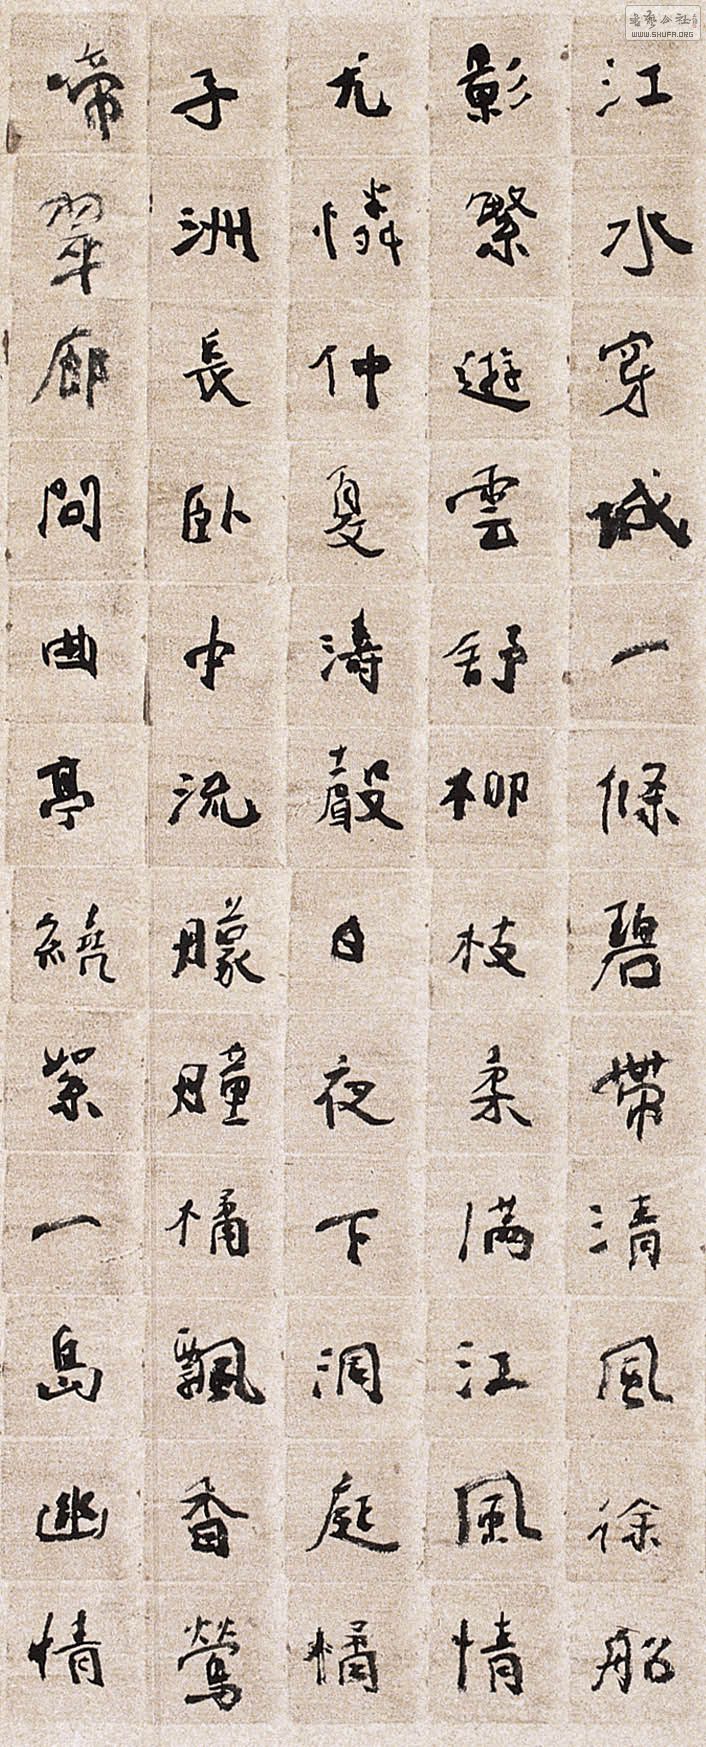 江水穿城一條碧帶清風徐船
影繫遊雲舒柳枝柔满江風情
尤憐仲夏濤聲日夜下洞庭橘
子洲長卧中流朦朣橘飄香鶯
啼翠廊間曲亭繞縈一島幽情
書藝公社
WWW.SHUFA.ORG